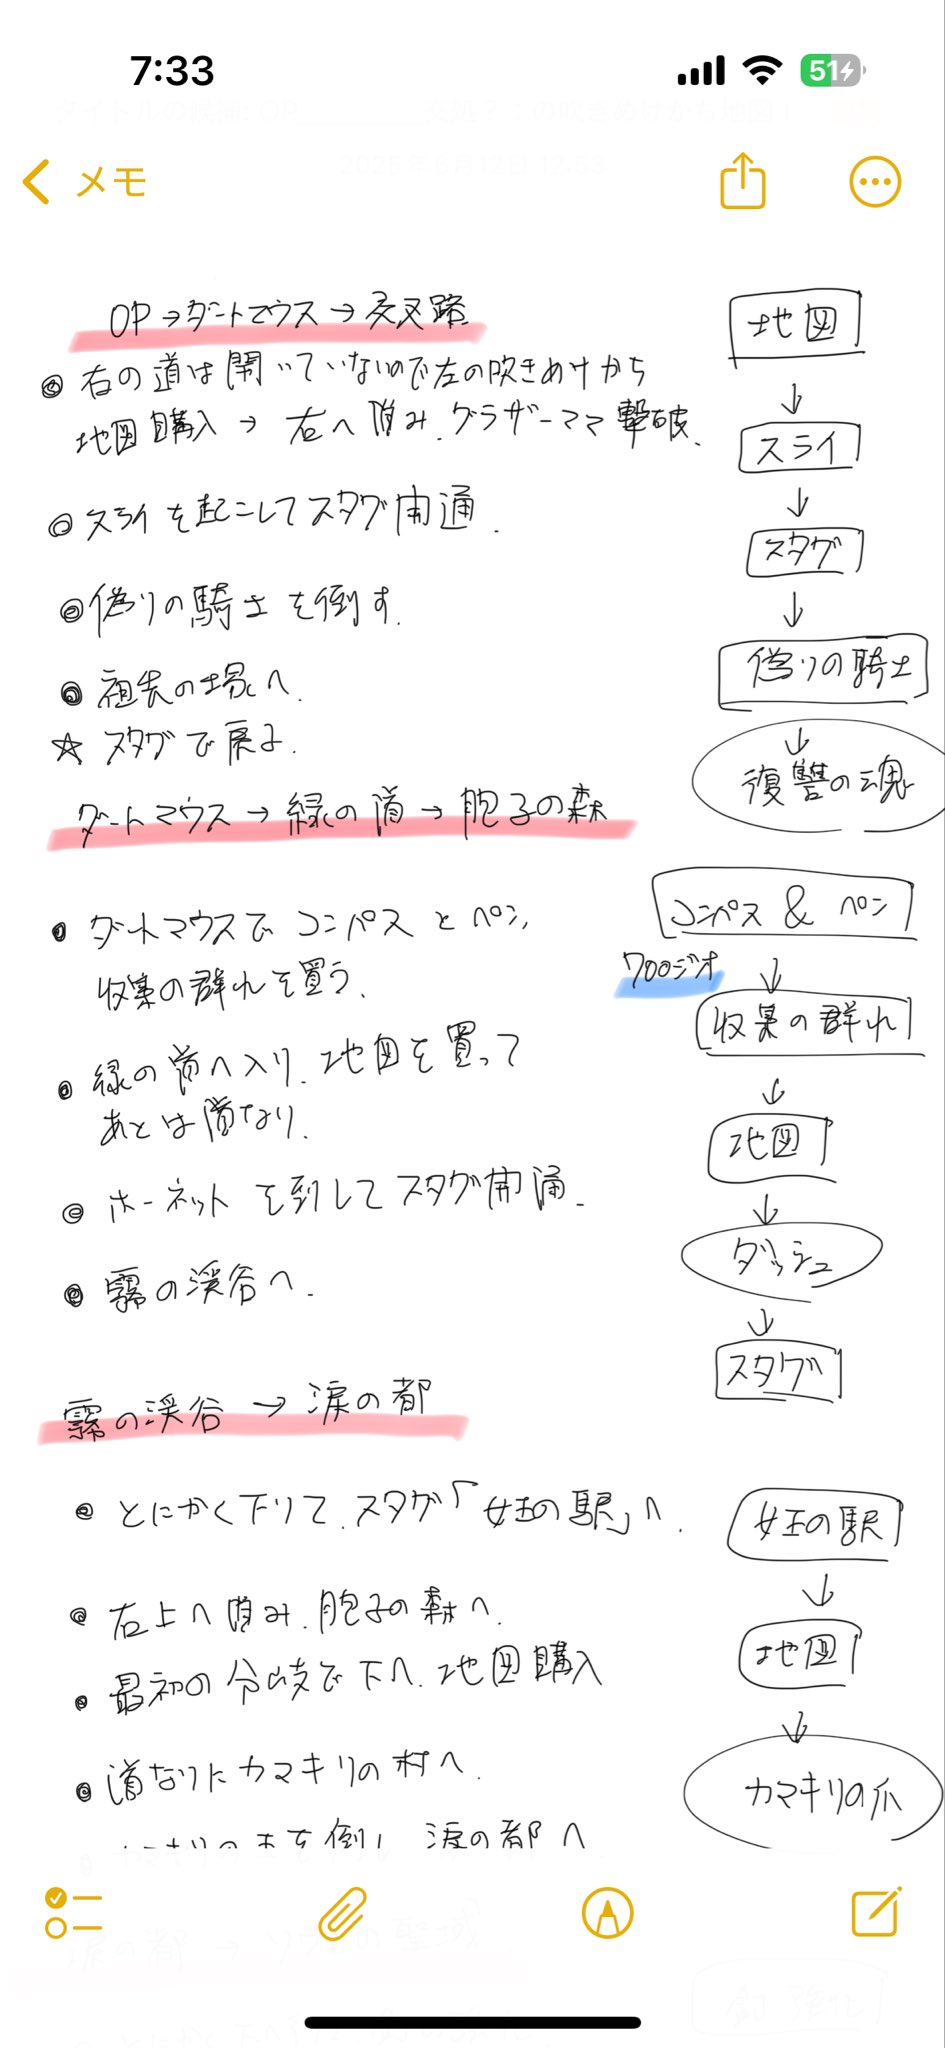 7:33
51
メモ
OP→ダートマウス→交叉路
右の道は開いていないので左の吹きぬけから
地図購入→右へ進み.グラザーママ撃破.
スライを起こしてスタグ開通.
偽りの騎士を倒す.
祖先の塚へ.
☆スタグで戻る.
地図
↓
スライ
↓
スタグ
↓
偽りの騎士
↓
復讐の魂
ダートマウス→緑の道→胞子の森
ダートマウスでコンパスとペン,
収集の群れを買う.
緑の道へ入り.地図を買って
あとは道なり.
ホーネットを倒してスタグ開通.
霧の渓谷へ.
コンパス & ペン
700ジオ
↓
収集の群れ
↓
地図
↓
ダッシュ
↓
スタグ
霧の渓谷→涙の都
とにかく下りて.スタグ「女王の駅」へ.
右上へ進み.胞子の森へ.
最初の分岐で下へ.地図購入
道なりにカマキリの村へ.
を倒し 涙の都へ
女王の駅
↓
地図
↓
カマキリの爪
涙の都→ソウルの聖域